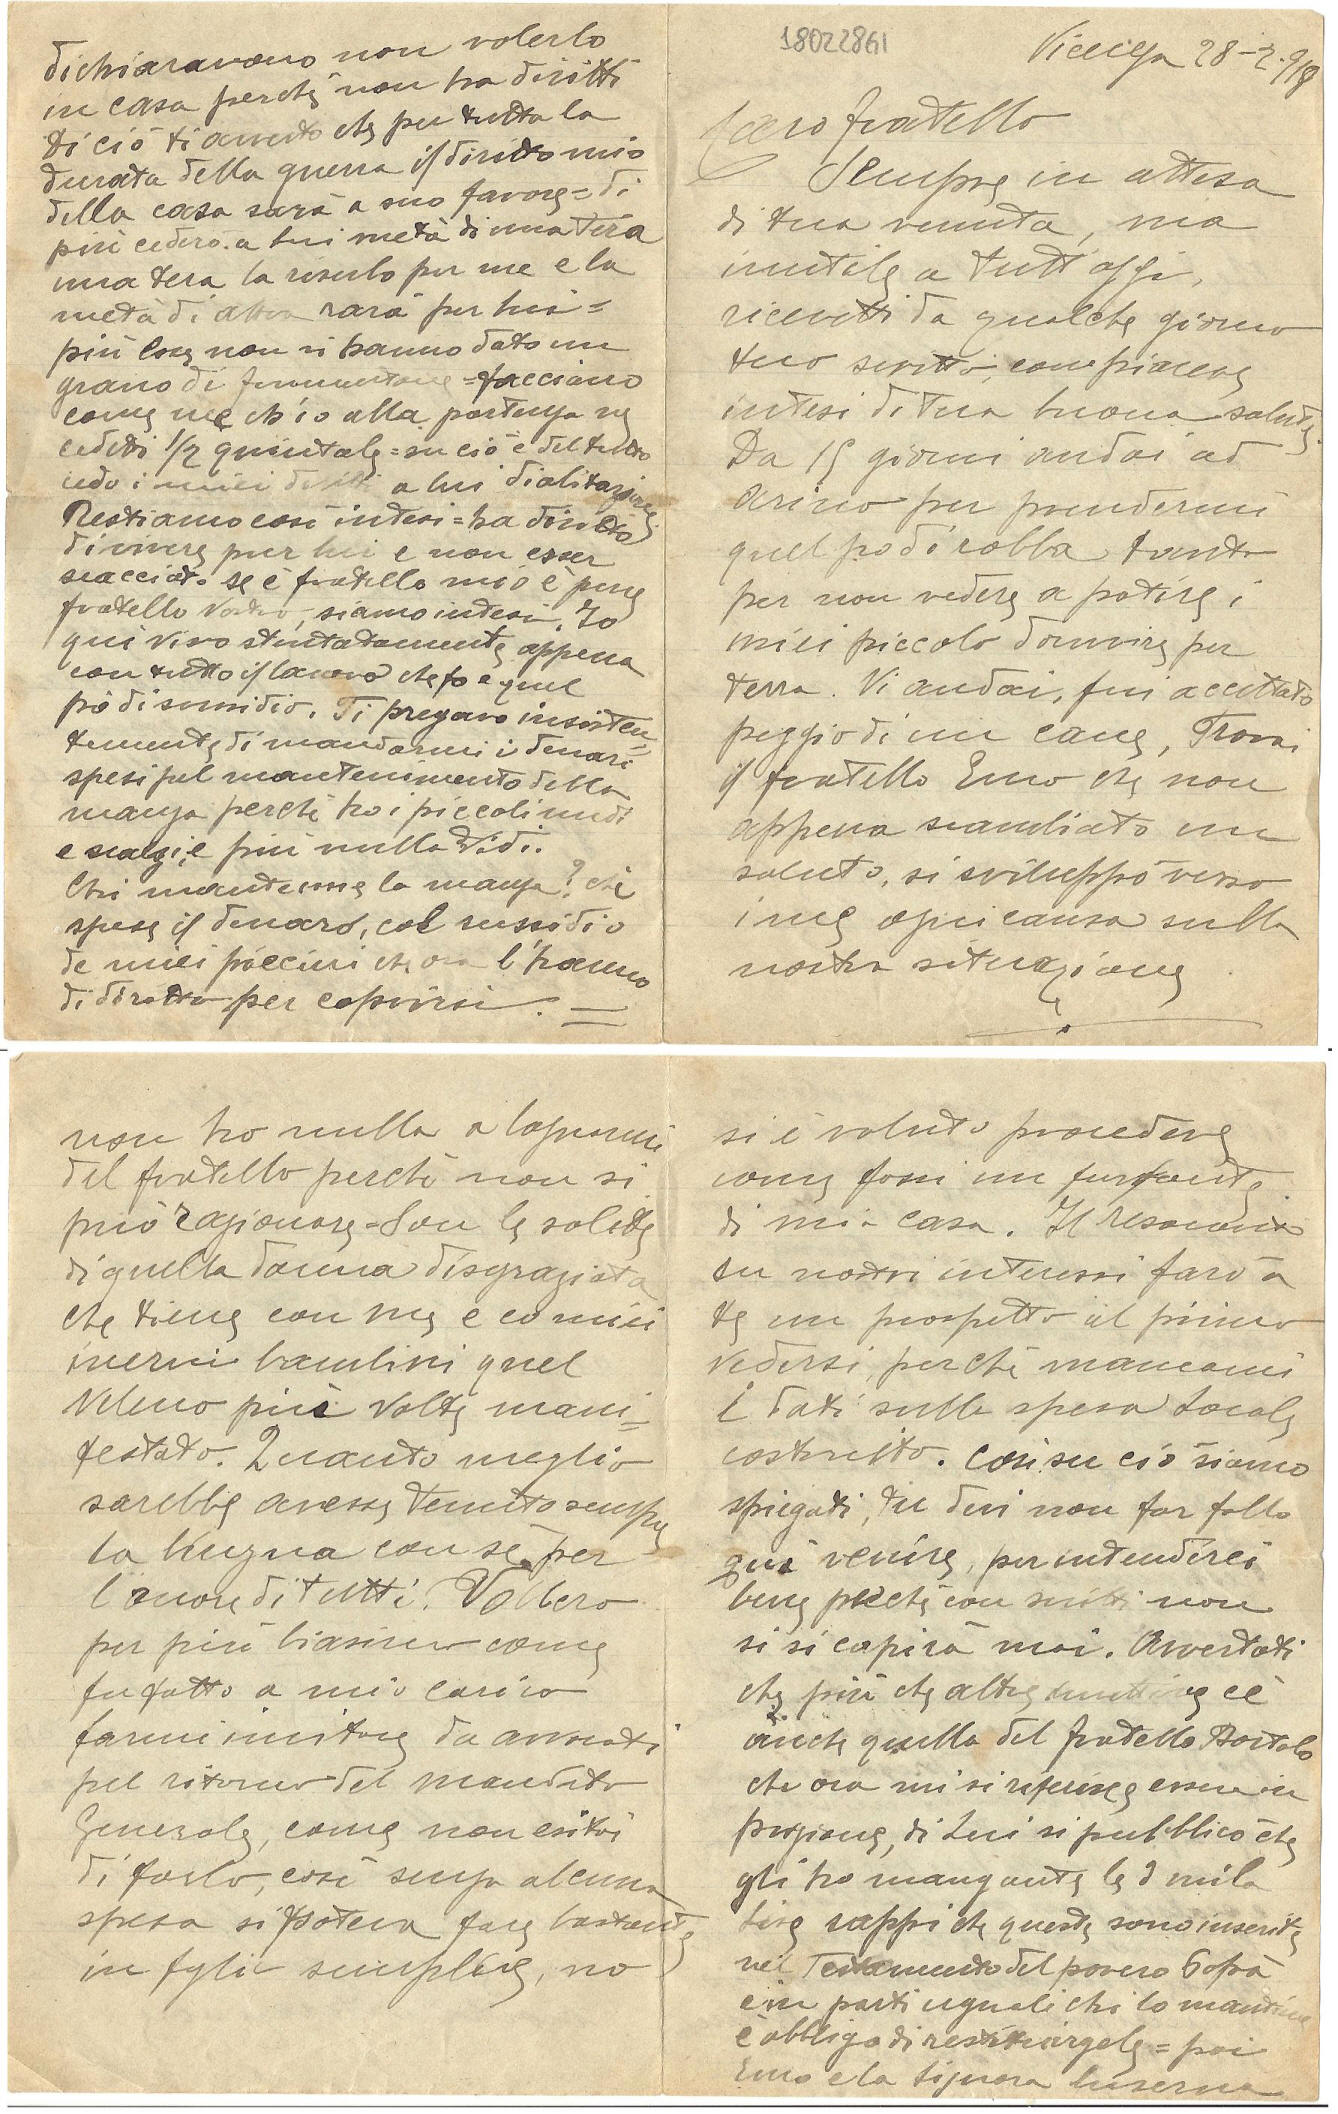 18022861
Vicenza 28-2-918
Caro fratello
Sempre in attesa
di tua venuta, ma
inutile a tutt'oggi,
ricevetti da qualche giorno
tuo scritto, con piacere
intesi di tua buona salute,
Da 15 giorni andai ad
Arino per prendermi
quel po di robba tanto
per non vedere a patire i
miei piccolo dormire per
terra. Vi andai, fui accettato
peggio di un cane, Trovai
il fratello Emo che non
appena scambiato un
saluto, si sviluppò verso
i me ogni causa sulla
nostra situazione
non ho nulla a lagnarmi
del fratello perchè non si
può ragionare = Son le solite
di quella donna disgraziata
che tiene con me e co miei
inermi bambini quel
veleno più volte mani=
festato. Quanto meglio
sarebbe avesse tenuto sempre
la lingua con sè per
l'onore di tutti. Vollero
per più biasimo come
fu fatto a mio carico
farmi invitare da avvocati
pel ritorno del mandato
Generale, come non esitai
di farlo, così senza alcuna
spesa si poteva fare bastante
in foglio semplice, no
si è voluto procedere
come fossi un furfante
di mia casa. Il resoconto
su nostri interessi farò a
te un prospetto al primo
vedersi, perchè mancami
i dati sulla spesa locale
costruito. Così su ciò siamo
spiegati, tu devi non far fallo
qui venire, per intenderci
bene perchè con scritti non
si si capirà mai. Avvertoti
che più che altre c'è
anche quella del fratello Bortolo
che ora mi si riferisce essere in
prigione, di lui si pubblicò che
gli ho mangiate le 2 mila
lire sappi che queste sono inserite
nel Testamento del povero Papà
e in parti uguali chi lo mantiene
è obbligo di restituirgele = poi
Emo e la Signora
dichiaravano non volerlo
in casa perchè non ha diritti
di ciò ti avverto che per tutta la
durata della guerra il diritto mio
della casa sarà a suo favore = di
più cederò a lui metà di una tera
una tera la riserbo per me e la
metà di altra sarà per lui =
più loro non si hanno dato un
grano di formentone = facciano
come me ch'io alla partenza ne
cedetti 1/2 quintale = su ciò è del tutto
cedo i miei diritti a lui di abitazione
Restiamo così intesi = ha diritto
di vivere pur lui e non esser
scacciato se è fratello mio è pure
fratello vostro, siamo intesi. Io
qui vivo stentatamente appena
con tutto il lavoro che fo e quel
pò di sussidio. Ti pregavo insisten=
temente di mandarmi i denari
spesi pel mantenimento della
manza perchè ho i piccoli nudi
e scalzi, e più nulla vidi.
Chi mantenne la manza? chi
spese il denaro, col sussidio
de miei piccini che ora l'hanno
di diritto per coprirsi. =